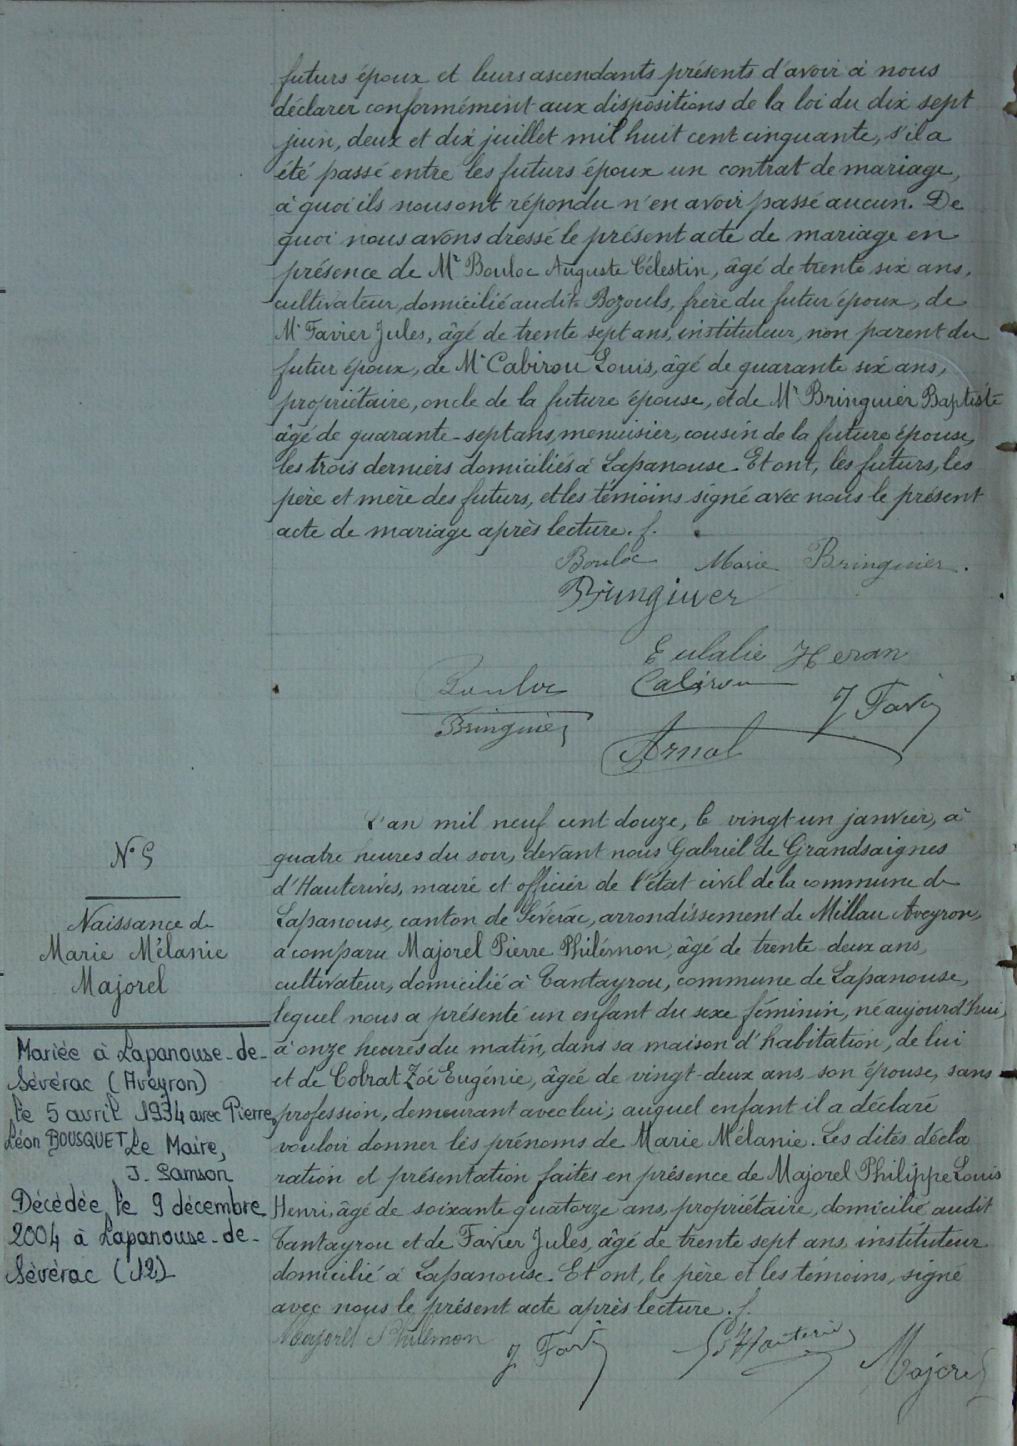 futurs époux et leurs ascendants présents d'avoir à nous
déclarer conformément aux dispositions de la loi du dix sept
juin, deux et dix juillet mil huit cent cinquante, s'il a
été passé entre les futurs époux un contrat de mariage,
à quoi ils nous ont répondu n'en avoir passé aucun. De
quoi nous avons dressé le présent acte de mariage en
présence de Mr Bouloc Auguste Célestin, âgé de trente six ans,
cultivateur, domicilié audit Bozouls, frère du futur époux, de
Mr Favier Jules, âgé de trente sept ans, instituteur, non parent du
futur époux, de Mr Cabirou Louis, âgé de quarante six ans,
propriétaire, oncle de la future épouse, et de Mr Bringuier Baptiste
âgé de quarante-sept ans, menuisier, cousin de la future épouse,
les trois derniers domiciliés à Lapanouse. Et ont, les futurs, les
père et mère des futurs, et les témoins signé avec nous le présent
acte de mariage après lecture. f.
Bouloc Marie Bringuier.
Bringiuer
Eulalie Heran
Bouloc Cabirou
J Favier
Bringuier
Arnal
L'an mil neuf cent douze, le vingt un janvier, à
quatre heures du soir, devant nous Gabriel de Grandsaignes
d'Hauterives, maire et officier de l'état civil de la commune de
Lapanouse, canton de Sévérac, arrondissement de Millau Aveyron,
a comparu Majorel Pierre Philémon, âgé de trente deux ans,
cultivateur, domicilié à Tantayrou, commune de Lapanouse,
lequel nous a présenté un enfant du sexe féminin, né aujourd'hui,
à onze heures du matin, dans sa maison d'habitation, de lui
et de Cobrat Zoé Eugénie, âgée de vingt-deux ans, son épouse, sans
profession, demeurant avec lui; auquel enfant il a déclaré
vouloir donner les prénoms de Marie Mélanie. Les dites décla
ration et présentation faites en présence de Majorel Philippe Louis
Henri, âgé de soixante quatorze ans, propriétaire, domicilié audit
Tantayrou et de Favier Jules, âgé de trente sept ans, instituteur
domicilié à Lapanouse. Et ont, le père et les témoins, signé
avec nous le présent acte après lecture. f.
Majorel Philémon
J Favier
Majorel
N° 5
Naissance de
Marie Mélanie
Majorel
Mariée à Lapanouse-de-
Sévérac (Aveyron)
le 5 avril 1934 avec Pierre,
Léon BOUSQUET Le Maire,
J. Samson
Décédée le 9 décembre
2004 à Lapanouse-de-
Sévérac (12)